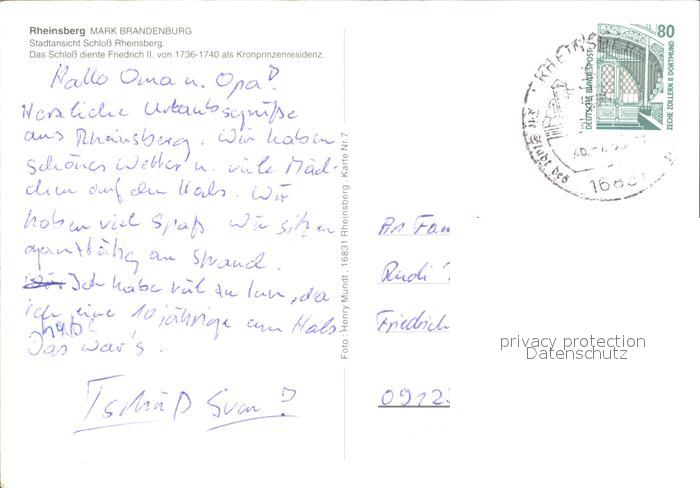 Rheinsberg MARK BRANDENBURG
Stadtansicht Schloß Rheinsberg.
Das Schloß diente Friedrich II. von 1736-1740 als Kronprinzenresidenz.
Hallo Oma u. Opa!
Herzliche Urlaubsgrüße
aus Rheinsberg. Wir haben
schönes Wetter u. viele Mäd-
chen auf dem Hals. Wir
haben viel Spaß. Wir sitzen
ganztätig am Strand.
Ich habe viel zu tun, da
ich eine 10 jährige am Hals
habe
Das war's.
Tschüß Sven!
Foto: Henry Mundt, 16831 Rheinsberg, Karte Nr. 7
80
DEUTSCHE BUNDESPOST
ZECHE ZOLLERN II DORTMUND
RHEINSBERG
1683
An Fam
Rudi
Friedrich
0912
privacy protection
Datenschutz